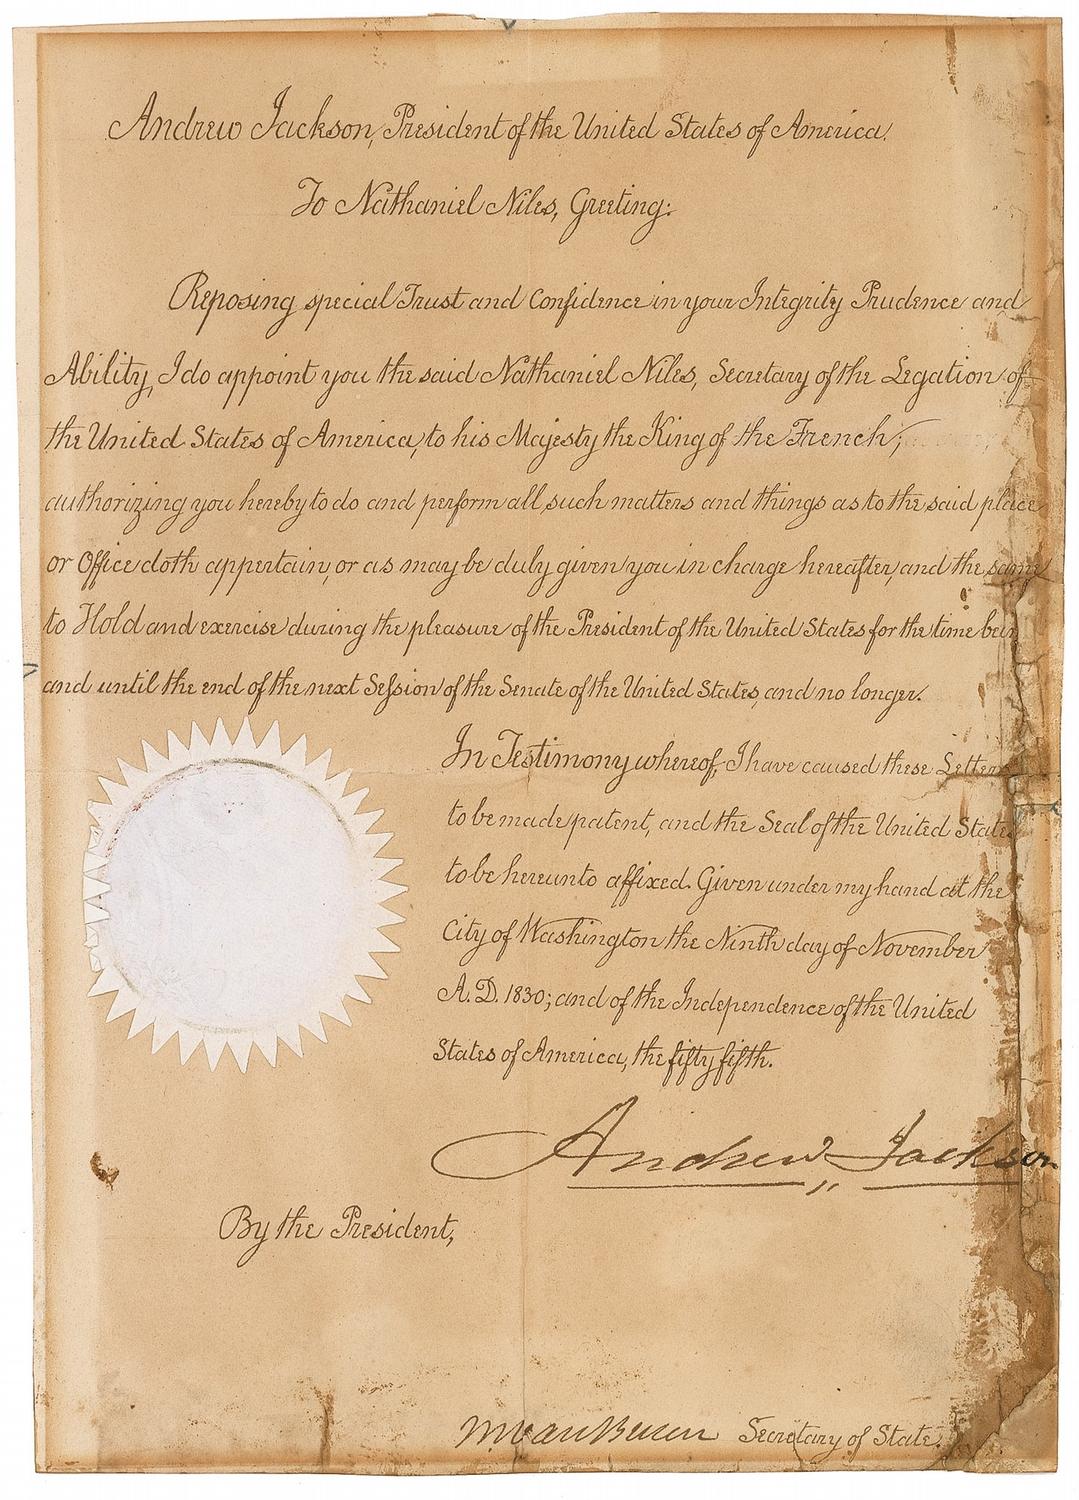 Andrew Jackson, President of the United States of America.
To Nathaniel Niles, Greeting:
Reposing special Trust and Confidence in your Integrity Prudence and
Ability, I do appoint you the said Nathaniel Niles, Secretary of the Legation of
the United States of America, to his Majesty the King of the French;
authorizing you hereby to do and perform all such matters and things as to the said place
or Office doth appertain, or as may be duly given you in charge hereafter, and the same
to Hold and exercise during the pleasure of the President of the United States for the time bein
and until the end of the next Session of the Senate of the United States, and no longer.
In Testimony whereof, I have caused these Letters
to be made patent, and the Seal of the United States
to be hereunto affixed. Given under my hand at the
City of Washington the Ninth day of November
A.D. 1830; and of the Independence of the United
States of America, the fifty fifth.
Andrew Jackson
By the President,
M Van Buren Secretary of State.